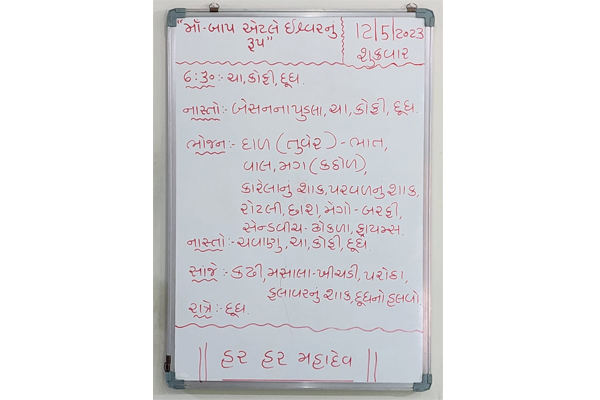 "માઁ-બાપ એટલે ઈશ્વરનું
રૂપ"
12/5/2023
શુક્રવાર
૬:૩૦:- ચા, કોફી, દૂધ.
નાસ્તો:- બેસનના પુડલા, ચા, કોફી, દૂધ.
ભોજન:- દાળ (તુવેર) - ભાત,
વાલ, મગ (કઠોળ),
કારેલાનું શાક, પરવળનું શાક,
રોટલી, છાશ, મેંગો-બરફી,
સેન્ડવીચ-ઢોકળા, ફ્રાયમ્સ.
નાસ્તો:- ચવાણુ, ચા, કોફી, દૂધ
સાજે:- કઢી, મસાલા-ખીચડી, પરોઠા,
ફલાવરનું શાક, દૂધનો હલવો.
રાત્રે:- દૂધ.
|| હર હર મહાદેવ ||